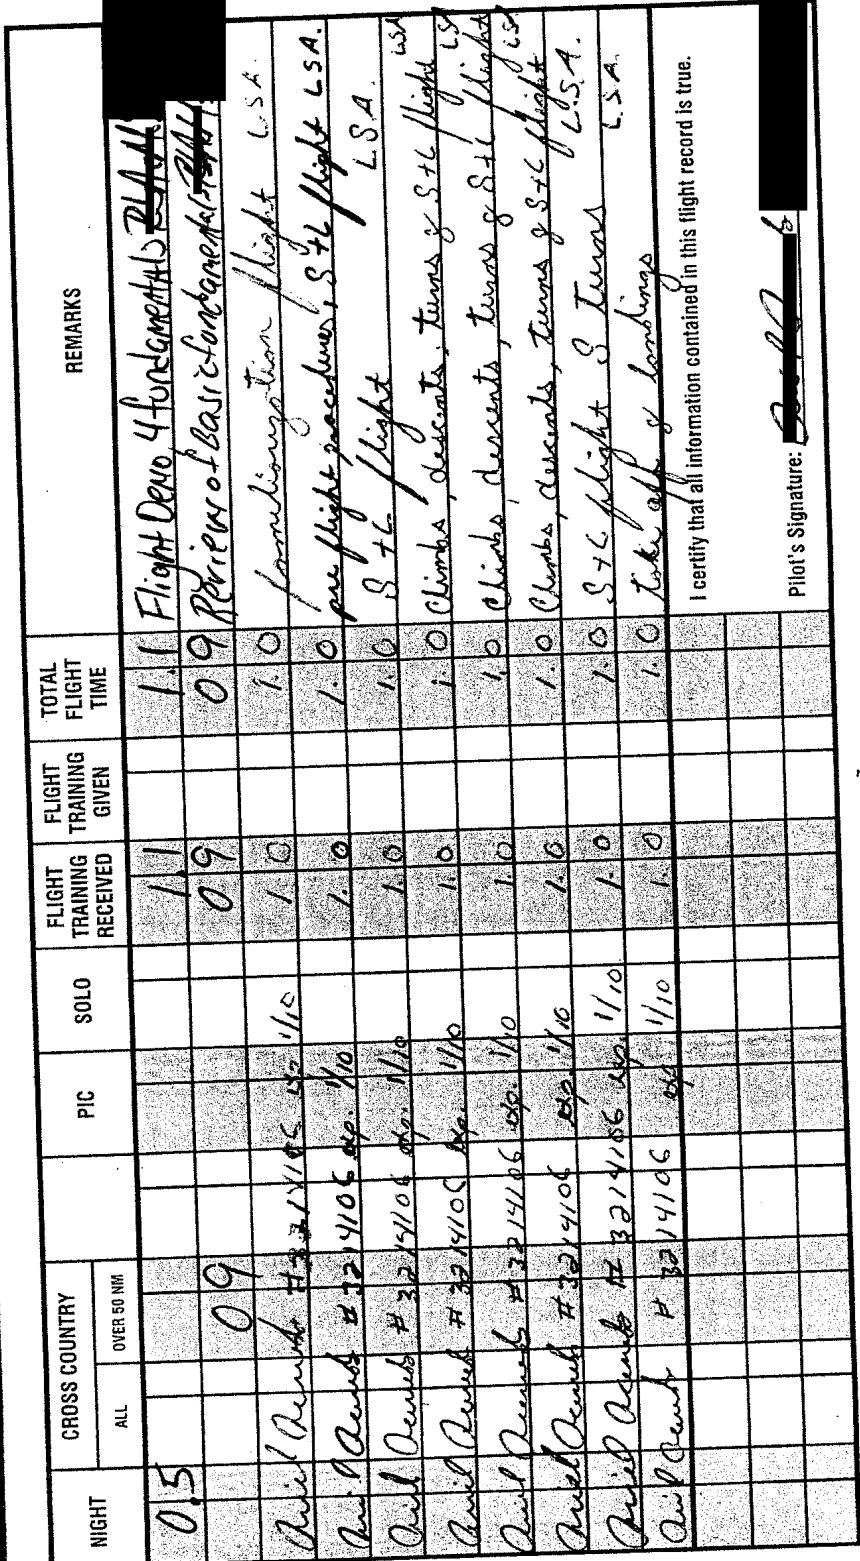 NIGHT CROSS COUNTRY ALL OVER 50 NM PIC SOLO FLIGHT TRAINING RECEIVED FLIGHT TRAINING GIVEN TOTAL FLIGHT TIME REMARKS
0.5 1.1 1.1 Flight Demo, 4 fundamentals
09 09 09 Review of Basic fundamentals
1/10 1.0 1.0 familiarization flight LSA.
# 3214106 exp. 1/10 1.0 1.0 pre flight procedures, S+L flight LSA.
# 3214106 exp. 1/10 1.0 1.0 S+L flight L.S.A.
# 3214106 exp. 1/10 1.0 1.0 Climbs, descents, turns & S+L flight LSA
# 3214106 exp. 1/10 1.0 1.0 Climbs, descents, turns & S+L flight LSA
# 3214106 exp. 1/10 1.0 1.0 Climbs, descents, turns & S+L flight L.S.A.
# 3214106 exp. 1/10 1.0 1.0 S+L flight S turns L.S.A.
# 3214106 exp. 1/10 1.0 1.0 take off & landings
I certify that all information contained in this flight record is true.
Pilot's Signature: